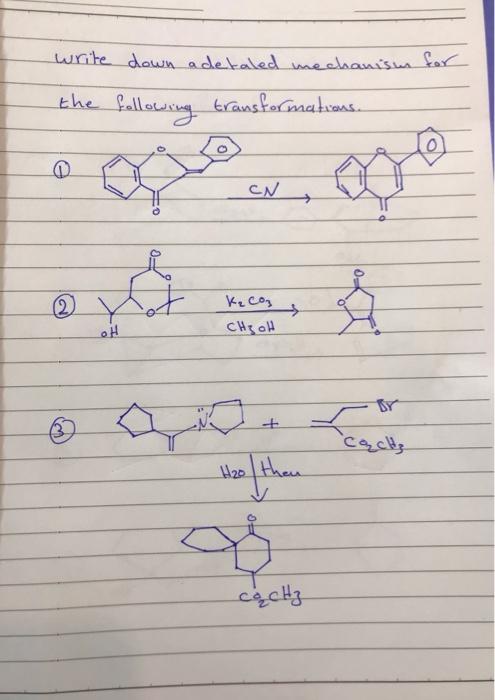 write down a detaled mechanism for
the following transformations.
①
O
O
O
CN
O
O
O
②
O
O
O
OH
K2CO3
CH3OH
O
O
O
③
N
+
Br
CO2CH3
H2O / then
O
CO2CH3